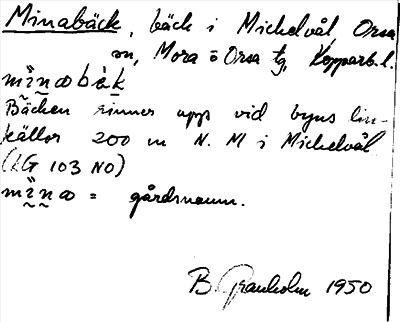 Minabäck, bäck i Michelvål, Orsa
sn, Mora o Orsa tg, Kopparb. l.
Bäcken rinner upp vid byns lin-
källor 200 m N. M i Michelvål
(KG 103 NO)
= gårdsnamn.
B. Granholm 1950